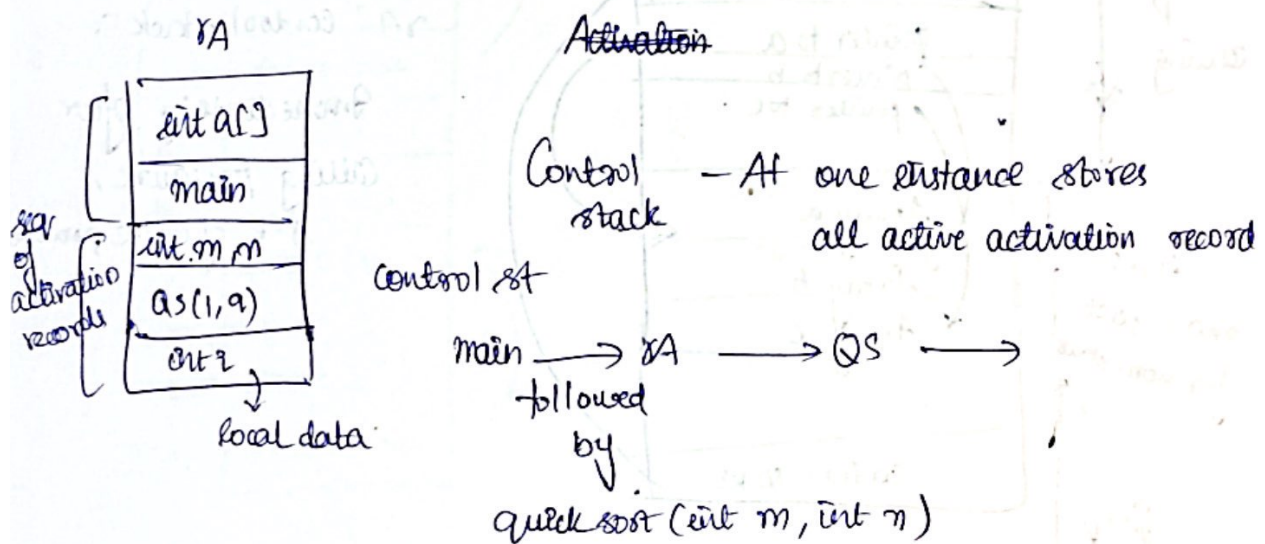 rA
Activation
int a[]
main
int m, n
qs(1,9)
int i
seq
of
activation
records
local data
Control - At one instance stores
stack all active activation record
control st
main → rA → QS →
followed
by
quick sort (int m, int n)